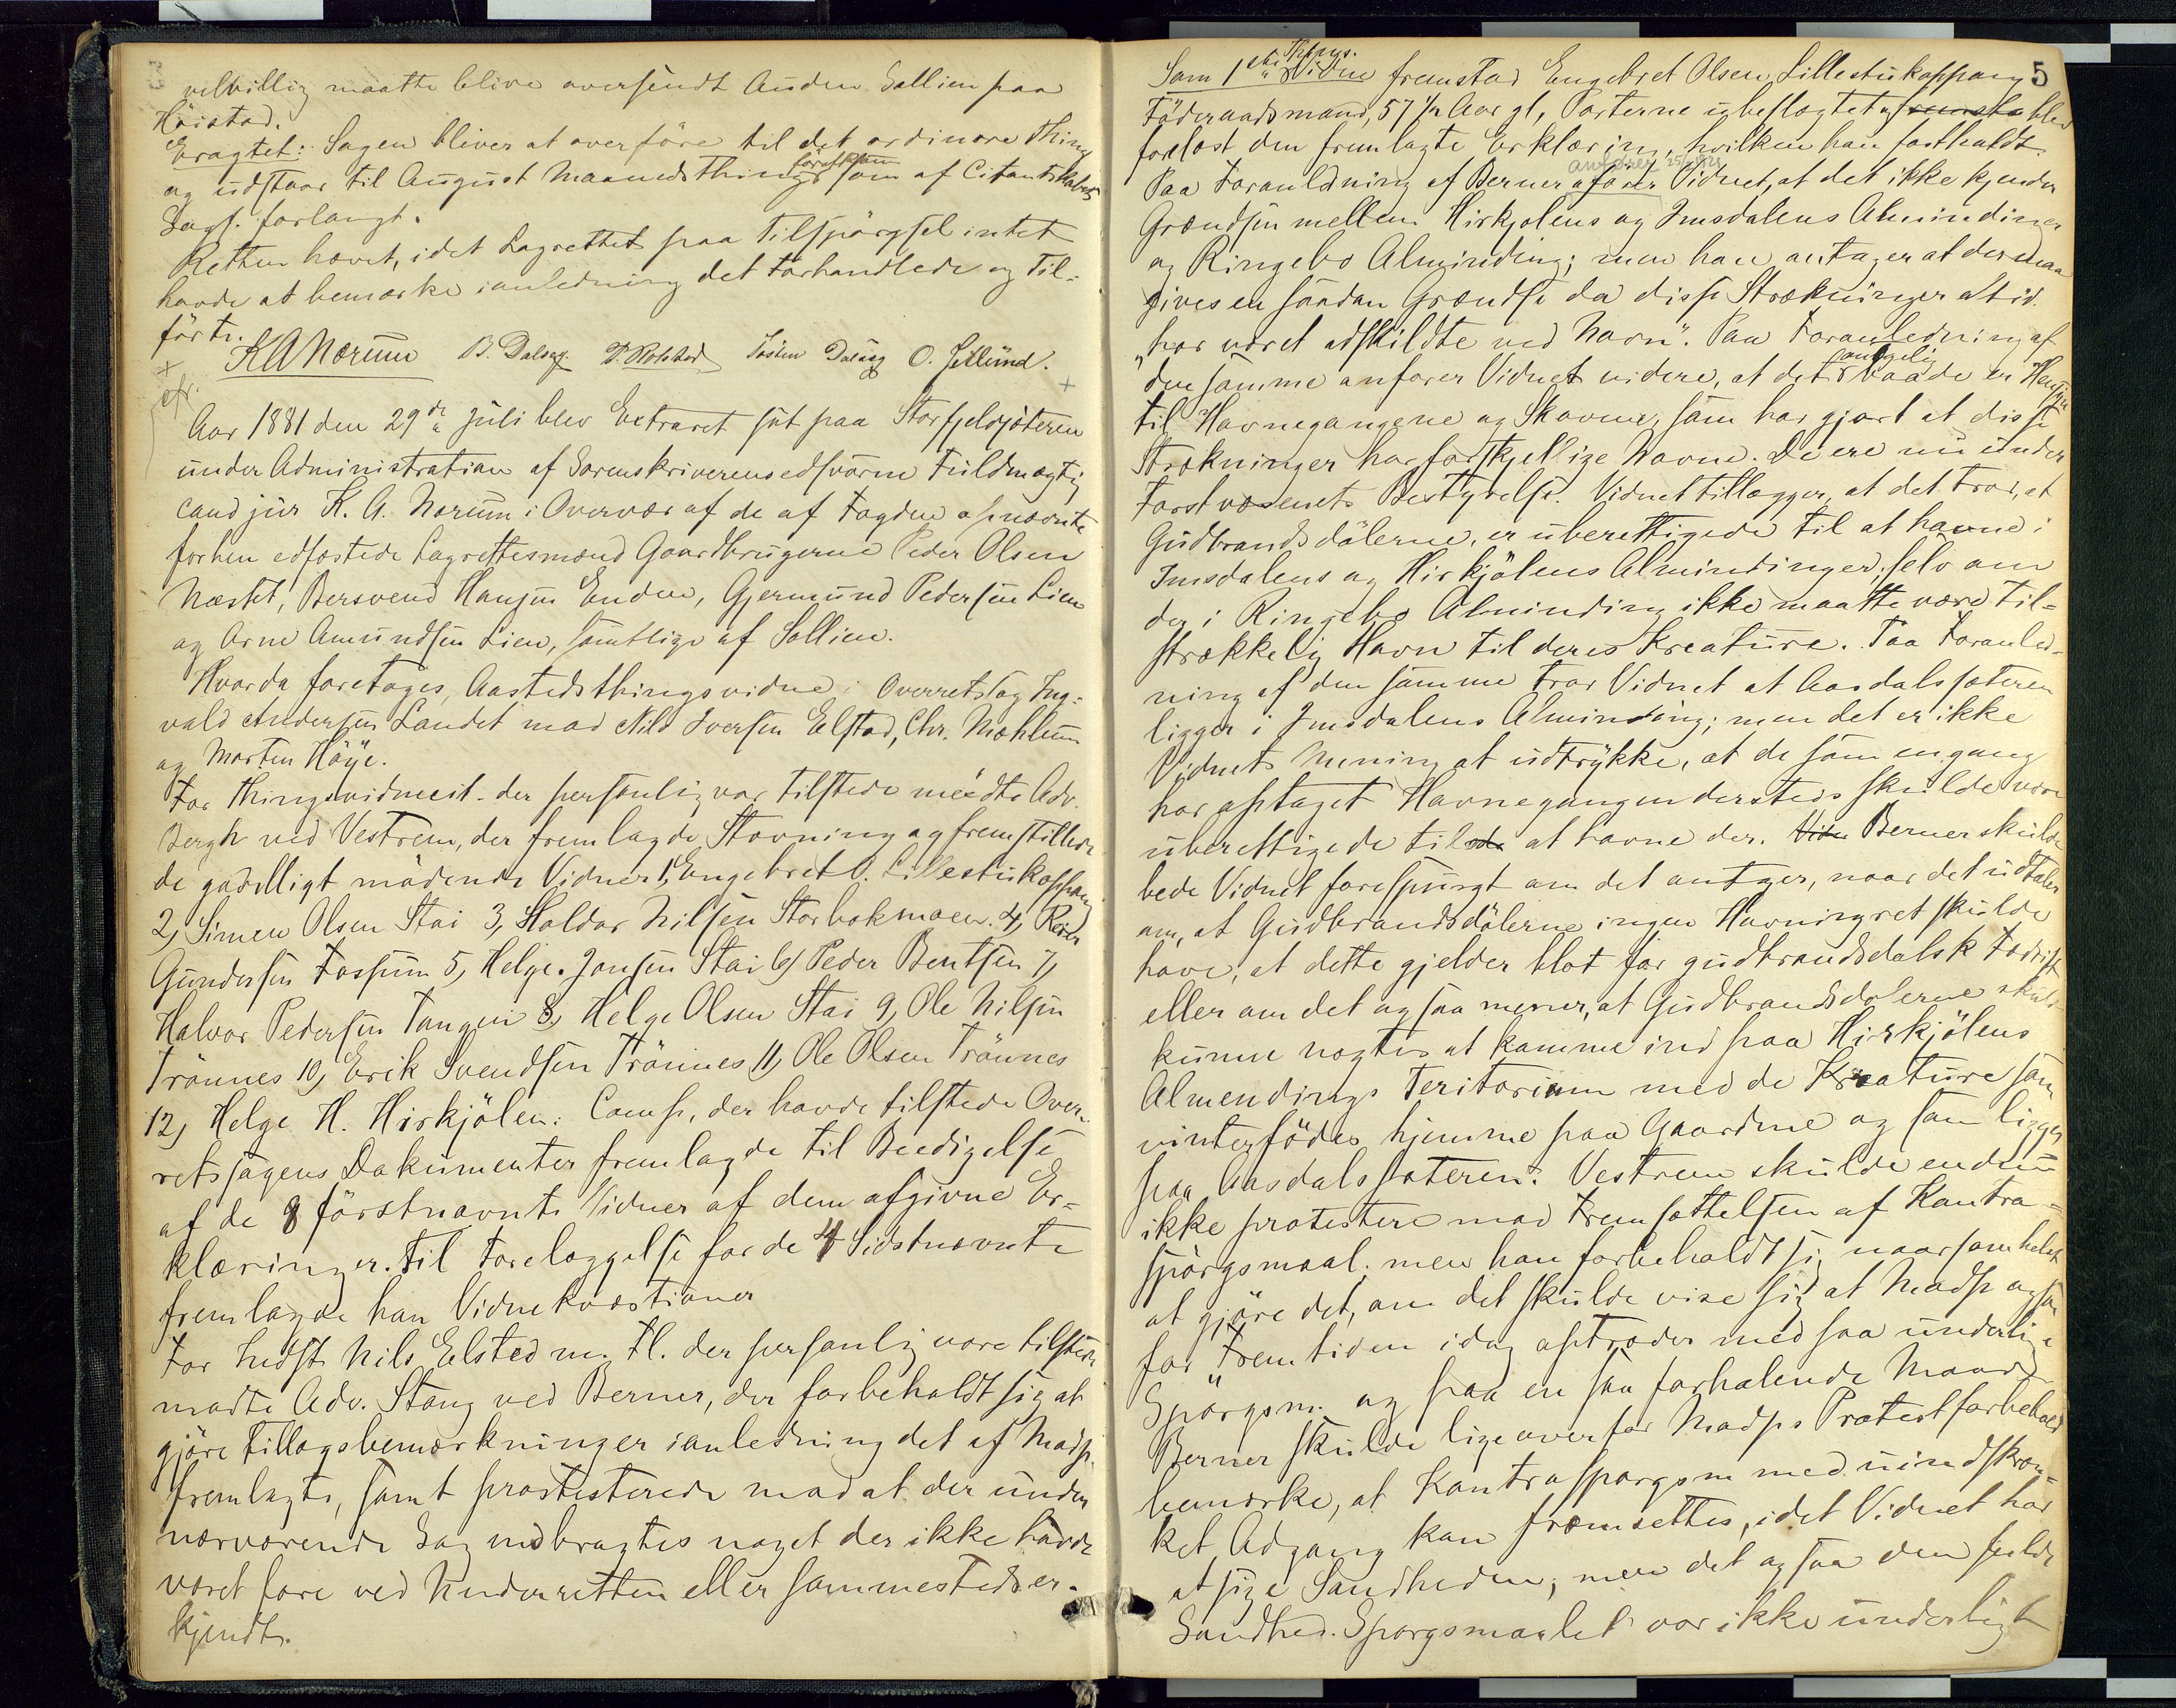 velvillig maatte blive oversendt Anden Sallien paa
Höistad.
Eragtet: Sagen bliver at overföre til det ordinære Thing
og udstaar til August Maanedsthing saafremt som af Citantskabets
Sagf. forlangt.
Retten hævet, idet Lagrettet paa Tilspörgsel intet
havde at bemærke i anledning det forhandlede og Til-
förte.
K A Nærum B. Dalseg. P. Rolstad Torsten Dalseg O. Jetlund.
Cfr.
Aar 1881 den 29de Juli blev Extraret sat paa Storfjeldsæteren
under Administration af Sorenskriverens edsvorne Fuldmægtig
cand jur K. A. Nærum i Overvær af de af Fogden opnævnte
forhen edfæstede Lagrettesmænd Gaardbrugerne Peder Olsen
Næstet, Bersvend Hansen Enden, Gjermund Pedersen Lien
og Arne Amundsen Lien, samtlige af Sollien.
Hvorda foretoges, Aastedsthingsvidne i Overretssag Ing-
vald Andersen Landet mod Nils Iversen Elstad, Chr. Mæhlum
og Morten Höye.
For Thingsvidnecit. der personlig var tilstede mödte Adv.
Bergh ved Vestrem, der fremlagde Stævning og fremstillede
de godvilligt mödende Vidner 1, Engebret O. Lillestukoppang
2, Simen Olsen Stai 3, Haldor Nilsen Storbækmoen. 4, Reier
Gundersen Fossum 5, Helge Jonsen Stai 6, Peder Bentsen 7,
Halvor Pedersen Tangen 8, Helge Olsen Stai 9, Ole Nilsen
Trönnes 10, Erik Svendsen Trönnes 11, Ole Olsen Trönnes
12, Helge H. Hirkjölen. Comp. der havde tilstede Over-
retssagens Dokumenter fremlagde til Beedigelse
af de 8 förstnævnte Vidner af dem afgivne Er-
klæringer. Til Forelæggelse for de 4 Sidstnævnte
fremlagde han Vidnekvæstioner
For Indst. Nils Elsted m. Fl. der personlig vare tilstede
mödte Adv. Stang ved Berner, der forbeholdt sig at
gjöre Tillægsbemærkninger i anledning det af Modp.
fremlagte, samt protesterede mod at der under
nærværende Sag indbragtes noget der ikke havde
været fore ved Underretten eller sammesteds er-
kjendt.
5
Som 1ste Thgvs. Vidne fremstod Engebret Olsen Lillestukoppang
Föderaadsmand, 57 1/2 Aar gl, Parterne ubeslægtet og blev
forelæst den fremlagte Erklæring, hvilken han fastholdt.
anförer 25/6 1921
Paa Foranledning af Berner anförer Vidnet, at det ikke kjender
Grændsen mellem Hirkjölens og Imsdalens Alminding
og Ringebo Alminding; men han antager at der maa
gives en saadan Grændse da disse Strækninger altid
"har været adskildte ved Navn". Paa Foranledning af
den samme anfører Vidnet videre, at det angelig baade er Hensyn
til Havnegangene og Skovene, som har gjort at disse
Strækninger har forskjellige Navne. De ere nu under
Forstvæsenets Bestyrelse. Vidnet tillægger, at det tror, at
Gudbrandsdölerne, er uberettigede til at havne i
Imsdalens og Hirkjölens Almindinger, selv om
der i Ringebo Alminding ikke maatte være til-
strækkelig Havn til deres Kreature. Paa Foranled-
ning af den samme tror Vidnet at Aasdalssæteren
ligger i Imsdalens Alminding; men det er ikke
Vidnets Mening at udtrykke, at de som engang
har optaget Havnegangen dersteds skulde være
uberettigede til at havne der. Berner skulde
bede Vidnet forespurgt om det antager, naar det udtaler
om, at Gudbrandsdölerne ingen Havningret skulde
have, at dette gjelder blot for gudbrandsdalsk Fædrift
eller om det ogsaa mener, at Gudbrandsdölerne skulde
kunne nægtes at komme ind paa Hirkjölens
Almendings Teritorium med de Kreature som
vinterfödes hjemme paa Gaardene og som ligger
paa Aasdalssæteren. Vestrem skulde endnu
ikke protestere mod Fremsættelsen af Kontra-
spörgsmaal, men han forbeholdt sig naarsomhelst
at gjöre det, om det skulde vise sig at Modp ogsaa
for Fremtiden idag optræder med saa underlige
Spörgsm. og paa en saa forhalende Maade.
Berner skulde ligeoverfor Modps Protestforbehold
bemærke, at Kontraspörgsm med uindskræn-
ket Adgang kan fremsættes, idet Vidnet har
at sige Sandheden; men det ogsaa den fulde
Sandhed. Spörgsmaalet var ikke underligt